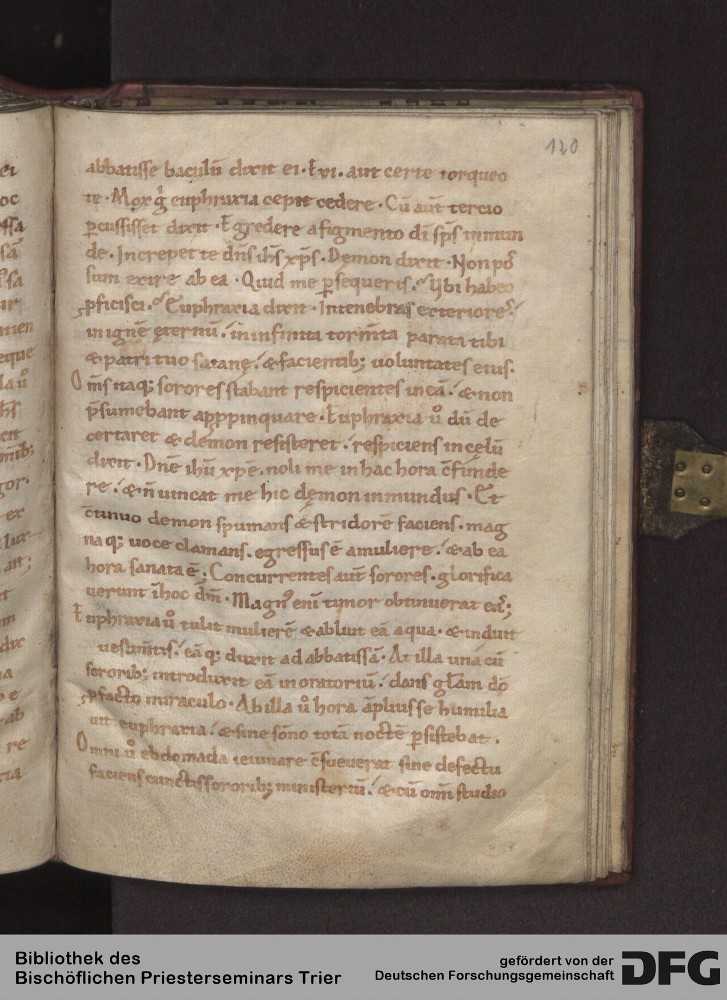 120
abbatisse baculū dixit ei · Exi · aut certe torqueo
te · Mox g̊ euphraxia cepit cedere · Cū aut̄ tercio
ꝑcussisset dixit · Egredere a figmento dī sp̄s inmun
de · Increpet te dn̄s ih̄s xp̄s · Demon dixit · Non pos
sum exire ab ea · Quid me ꝑsequeris · Vbi habeo
ꝓficisci · Euphraxia dixit · In tenebras exteriores
in ignē ęternū · in infinita torm̄ta parata tibi
& patri tuo satanę · & facientib; uoluntates eius ·
Om̄s itaq; sorores stabant respicientes in eā · & non
p̄sumebant appropinquare · Euphraxia u̅ dū de
certaret & demon resisteret · respiciens in celū
dixit · Dn̄e ih̄u xp̄e · noli me in hac hora c̄funde
re · & n̄ uincat me hic dęmon inmundus · Et
c̄tinuo demon spumans & stridorē faciens · mag
na q; uoce clamans · egressus ē a muliere · & ab ea
hora sanata ē ; Concurrentes aut̄ sorores · glorifica
uerunt ī hoc dm̄ · Magn⁹ enī timor obtinuerat eas ;
Euphraxia u̅ tulit mulierē & abluit eā aqua · & induit
uestim̄tis · eā q; duxit ad abbatissā · At illa una cū
sororib; introduxit eā in oratoriū · dans gl̄am dō
ꝓ facto miraculo · Ab illa u̅ hora āplius se humilia
uit euphraxia · & sine sōno totā noctē ꝑsistebat ·
Omni u̅ ebdomada ieiunare c̄sueuerat sine defectu
faciens cunctis sororib; ministeriū · & cū om̄i studio
Bibliothek des
Bischöflichen Priesterseminars Trier
gefördert von der
Deutschen Forschungsgemeinschaft
DFG